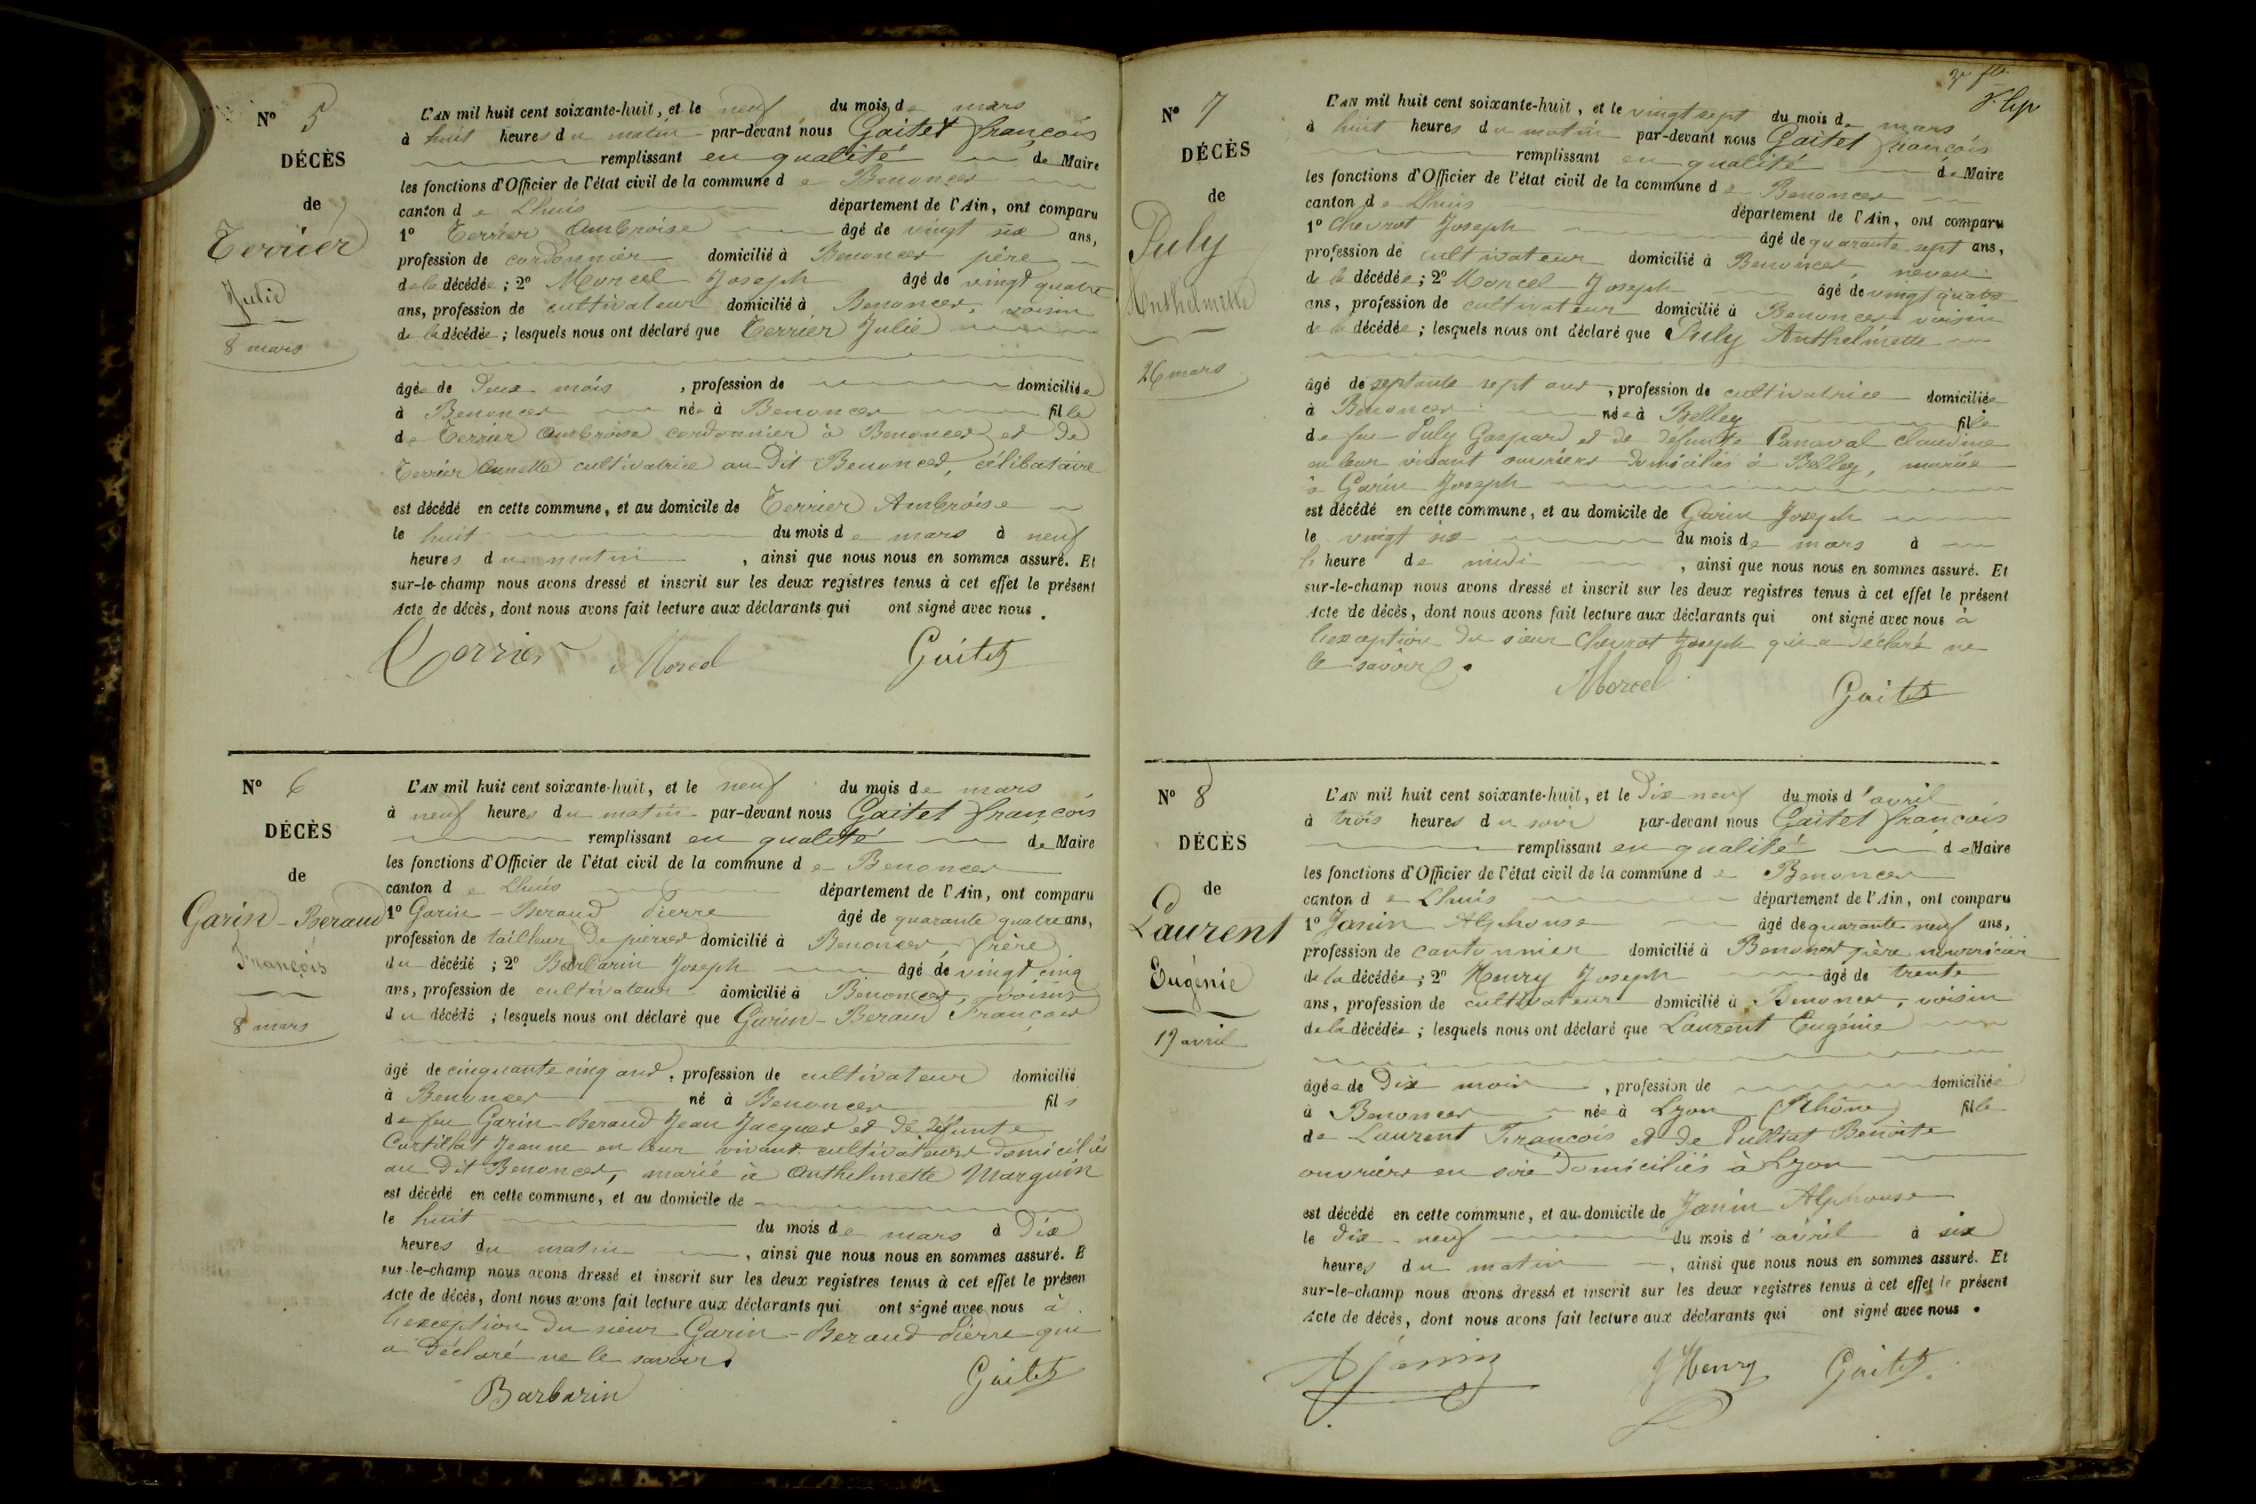 N° 5
DÉCÈS
de
Terrier
Julie
8 mars
L'AN mil huit cent soixante-huit, et le neuf du mois de mars
à huit heures du matin par-devant nous Gaitet françois
remplissant en qualité de Maire
les fonctions d'Officier de l'état civil de la commune de Benonces
canton de Lhuis département de l'Ain, ont comparu
1° Terrier Ambroise âgé de vingt six ans,
profession de cordonnier domicilié à Benonces père
de la décédée ; 2° Morcel Joseph âgé de vingt quatre
ans, profession de cultivateur domicilié à Benonces, voisin
de la décédée ; lesquels nous ont déclaré que Terrier Julie
âgée de deux mois , profession de domiciliée
à Benonces née à Benonces fille
de Terrier Ambroise cordonnier à Benonces et de
Terrier Annette cultivatrice au dit Benonces, célibataire
est décédé en cette commune, et au domicile de Terrier Ambroise
le huit du mois de mars à neuf
heures du matin , ainsi que nous nous en sommes assuré. Et
sur-le-champ nous avons dressé et inscrit sur les deux registres tenus à cet effet le présent
Acte de décès, dont nous avons fait lecture aux déclarants qui ont signé avec nous .
Terrier Morcel Gaitet
N° 6
DÉCÈS
de
Garin - Beraud
François
8 mars
L'AN mil huit cent soixante-huit, et le neuf du mois de mars
à neuf heures du matin par-devant nous Gaitet françois
remplissant en qualité de Maire
les fonctions d'Officier de l'état civil de la commune de Benonces
canton de Lhuis département de l'Ain, ont comparu
1° Garin - Beraud Pierre âgé de quarante quatre ans,
profession de tailleur de pierres domicilié à Benonces, frère
du décédé ; 2° Barbarin Joseph âgé de vingt cinq
ans, profession de cultivateur domicilié à Benonces, voisin
du décédé ; lesquels nous ont déclaré que Garin - Beraud François
âgé de cinquante cinq ans, profession de cultivateur domicilié
à Benonces né à Benonces fils
de feu Garin-Beraud Jean Jacques et de défunte
Curtillat Jeanne en leur vivant cultivateurs domiciliés
au dit Benonces, marié à Anthelmette Marguin
est décédé en cette commune, et au domicile de
le huit du mois de mars à dix
heures du matin , ainsi que nous nous en sommes assuré. E
sur-le-champ nous avons dressé et inscrit sur les deux registres tenus à cet effet le présen
Acte de décès, dont nous avons fait lecture aux déclarants qui ont signé avec nous à
l'exception du sieur Garin - Beraud Pierre qui
a déclaré ne le savoir.
Barbarin Gaitet
N° 7
DÉCÈS
de
Puly
Anthelmette
26 mars
L'AN mil huit cent soixante-huit, et le vingt sept du mois de mars
à huit heures du matin par-devant nous Gaitet françois
remplissant en qualité de Maire
les fonctions d'Officier de l'état civil de la commune de Benonces
canton de Lhuis département de l'Ain, ont comparu
1° Chevrot Joseph âgé de quarante sept ans,
profession de cultivateur domicilié à Benonces, neveu
de la décédée ; 2° Morcel Joseph âgé de vingt quatre
ans, profession de cultivateur domicilié à Benonces voisin
de la décédée ; lesquels nous ont déclaré que Puly Anthelmette
âgé de septante sept ans, profession de cultivatrice domiciliée
à Benonces née à Belley fille
de feu Puly Gaspard et de défunte Panaval Claudine
en leur vivant ouvriers domiciliés à Belley, mariée
à Garin Joseph
est décédé en cette commune, et au domicile de Garin Joseph
le vingt six du mois de mars à
l'heure de midi , ainsi que nous nous en sommes assuré. Et
sur-le-champ nous avons dressé et inscrit sur les deux registres tenus à cet effet le présent
Acte de décès, dont nous avons fait lecture aux déclarants qui ont signé avec nous à
l'exception du sieur Chevrot Joseph qui a déclaré ne
le savoir.
Morcel Gaitet
N° 8
DÉCÈS
de
Laurent
Eugénie
19 avril
L'AN mil huit cent soixante-huit, et le dix neuf du mois d'avril
à trois heures du soir par-devant nous Gaitet françois
remplissant en qualité de Maire
les fonctions d'Officier de l'état civil de la commune de Benonces
canton de Lhuis département de l'Ain, ont comparu
1° Janin Alphonse âgé de quarante neuf ans,
profession de cantonnier domicilié à Benonces père nourricier
de la décédée ; 2° Henry Joseph âgé de trente
ans, profession de cultivateur domicilié à Benonces, voisin
de la décédée ; lesquels nous ont déclaré que Laurent Eugénie
âgée de dix mois , profession de domiciliée
à Benonces née à Lyon (Rhône) fille
de Laurent François et de Pulliat Benoite
ouvriers en soie domiciliés à Lyon
est décédé en cette commune, et au domicile de Janin Alphonse
le dix - neuf du mois d'avril à six
heures du matin , ainsi que nous nous en sommes assuré. Et
sur-le-champ nous avons dressé et inscrit sur les deux registres tenus à cet effet le présent
Acte de décès, dont nous avons fait lecture aux déclarants qui ont signé avec nous .
A Janin J Henry Gaitet